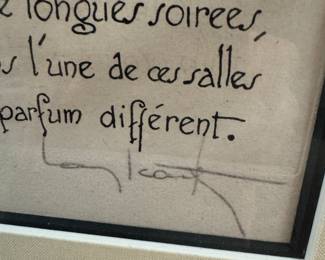 longues soirees,
s l'une de ces salles
parfum différent.